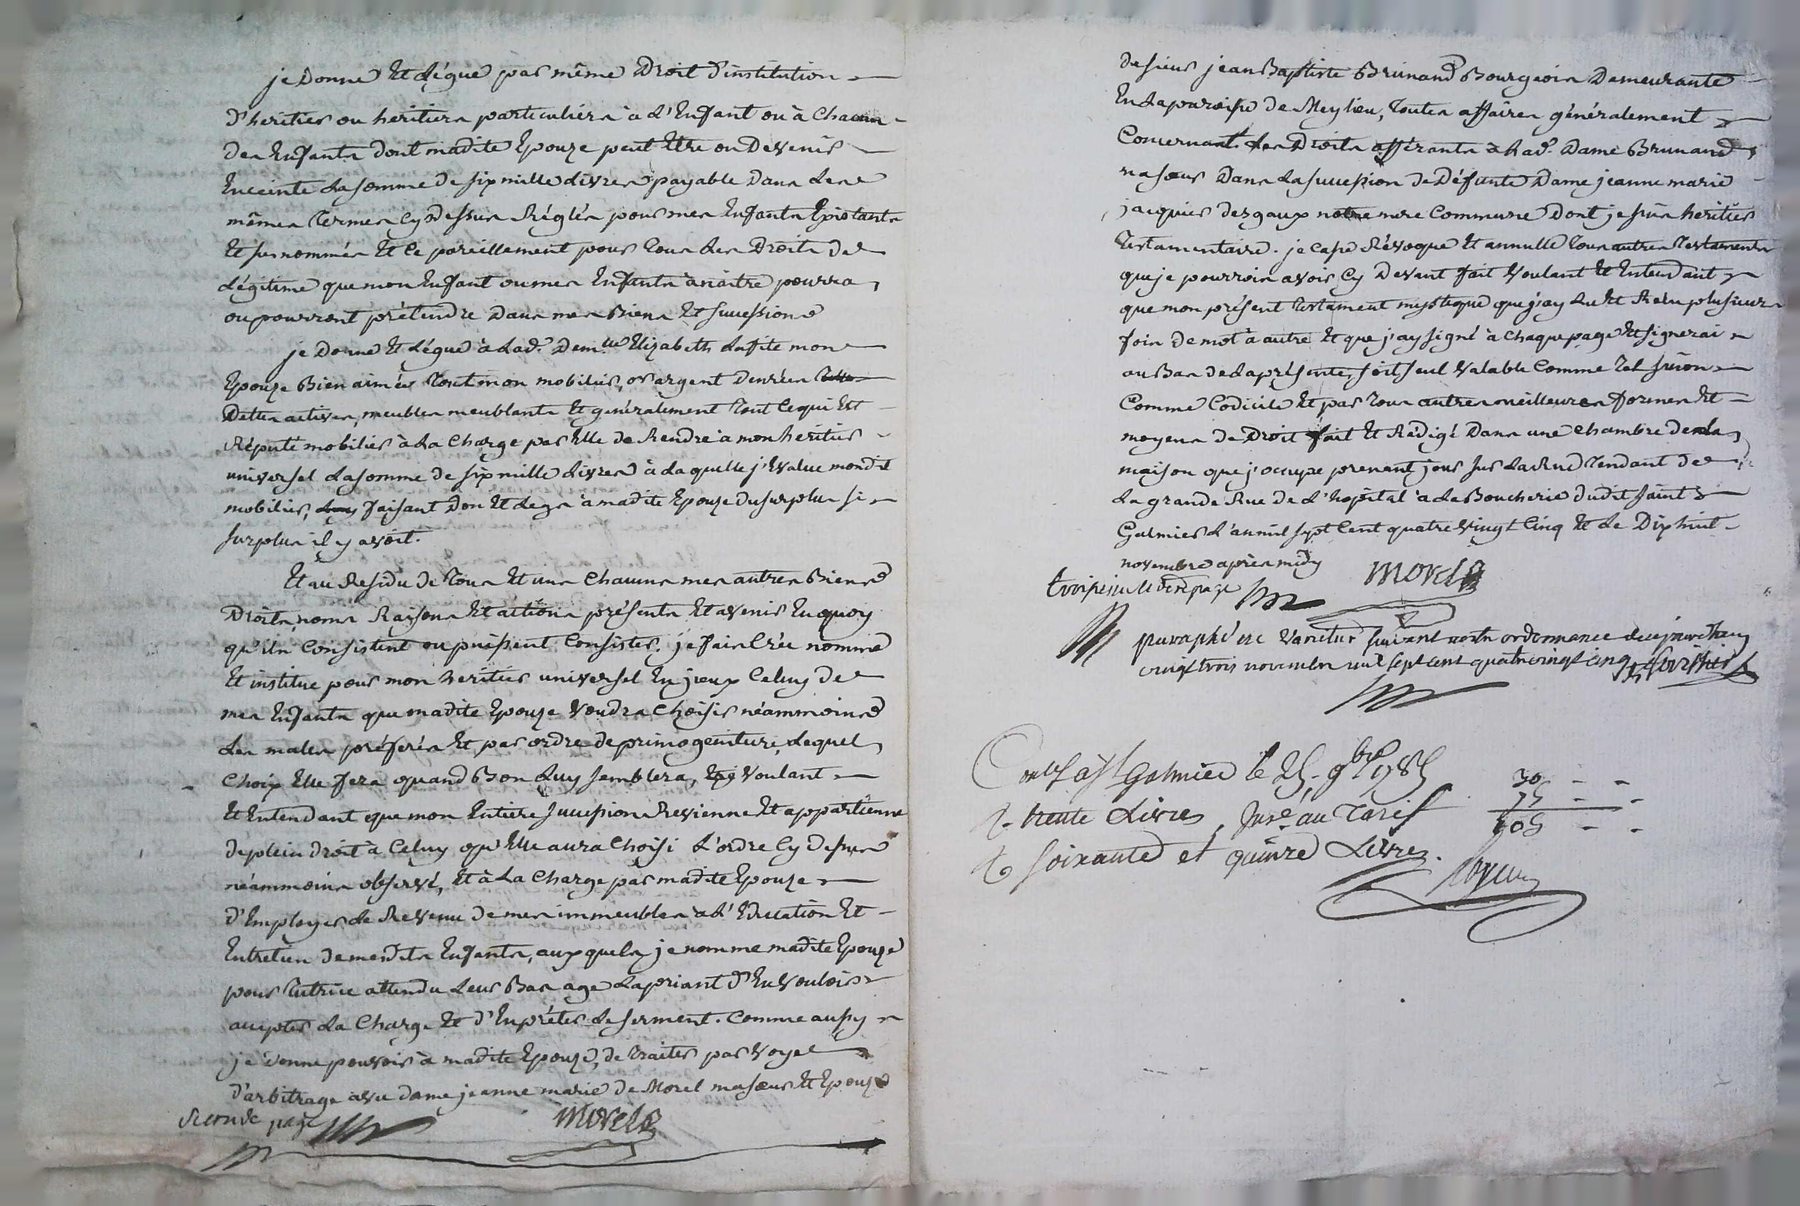 je Donne Et Légue par même Droit d'institution
d'heritier ou heritiers particuliers à L'Enfant ou à Chacun
des Enfants dont madite Epouze peut Etre ou Devenir
Enceinte La somme de six mille Livres payable Dans Les
mêmes Termes Cy Dessus Réglés pour mes Enfants Existants
Et susnommés Et Ce pareillement pour Tous Les Droits de
Légitime que mon Enfant ou mes Enfants à naitre pourra
ou pourront prétendre Dans mes Biens Et succession
je Donne Et Légue à Lad. Dem.lle Elizabeth Lafite mon
Epouze Bien aimée Tout mon mobilier, or argent Denrées
Dettes actives, meubles meublants Et généralement Tout Ce qui Est
Réputé mobilier à La Charge par Elle de Rendre à mon heritier
universel La somme de six mille Livres à Laquelle j'Evalue mondit
mobilier, faisant Don Et Legs à madite Epouze du surplus si
surplus il y avoit.
Et au Residu de Tous Et uns Chacuns mes autres Biens
Droits, noms Raisons Et actions présents Et avenir En quoy
qu'ils Consistent ou puissent Consister, je fais Crée nomme
Et institue pour mon heritier universel En jceux Celuy de
mes Enfants que madite Epouze Voudra Choisir néammoins
Les males préferés Et par ordre de primogeniture, Lequel
Choix Elle fera quand Bon Luy semblera, Voulant
Et Entendant que mon Entiere succession Revienne Et appartienne
de plein droit à Celuy qu'Elle aura Choisi L'ordre Cy dessus
néammoins observé, Et à La Charge par madite Epouze
d'Employer Le Revenu de mes immeubles à L'Education Et
Entretien de mesdits Enfants, auxquels je nomme madite Epouze
pour Tutrice attendu Leur Bas age La priant d'En Vouloir
accepter La Charge Et d'En prêter Le serment. Comme aussy
je donne pouvoir à madite Epouze, de Traiter par Voye
d'arbitrage avec dame jeanne marie de Morel ma sœur Et Epouze
Seconde page
Morel
de sieur jean Baptiste Brunand Bourgeois Demeurante
En La paroisse de Meylieu, Toutes affaires généralement
Concernant Les Droits afférants à Lad. Dame Brunand
ma sœur Dans La succession de Défunte Dame jeanne marie
jacquier desgaux notre mere Commune Dont je suis heritier
Testamentaire. je Casse Révoque Et annulle Tous autres Testaments
que je pourrois avoir Cy Devant fait Voulant Et Entendant
que mon présent Testament mystique que j'ay Lu Et Relu plusieurs
fois de mot à autre Et que j'ay signé à Chaque page Et signerai
au Bas de La présente, soit seul Valable Comme Tel sinon
Comme Codicile Et par Tous autres meilleures formes Et
moyens de Droit fait Et Rédigé Dans une Chambre de La
maison que j'occupe prenant jour sur La Rue Tendant de
La grande Rue de L'hopital à La Boucherie dudit saint
Galmier L'an mil sept Cent quatre Vingt Cinq Et Le Dix huit
novembre après midy
troisieme Et derre page
Morel
paraphé ne Varietur suivant notre ordonnance de cejourdhuy
vingt trois novembre mil sept cent quatrevingt cinq
Con.lé a St Galmier le 25 9bre 1785
R. trente Livres, Insé au Tarif
R. soixante et quinze Livres.
30
75
105